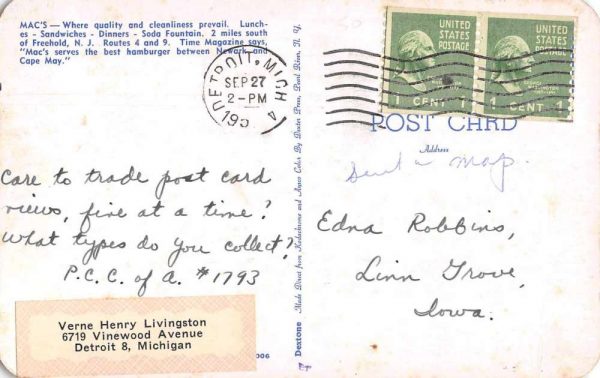 MAC'S — Where quality and cleanliness prevail. Lunch-
es - Sandwiches - Dinners - Soda Fountain. 2 miles south
of Freehold, N. J. Routes 4 and 9. Time Magazine says,
"Mac's serves the best hamburger between Newark and
Cape May."
DETROIT, MICH
SEP 27
2 - PM
195
4
UNITED
STATES
POSTAGE
1 CENT 1
UNITED
STATES
POSTAGE
1 CENT 1
POST CARD
Address
Sent a map.
Care to trade post card
views, five at a time?
What types do you collect?
P.C.C. of A. #1793
Edna Robbins,
Linn Grove,
Iowa.
Verne Henry Livingston
6719 Vinewood Avenue
Detroit 8, Michigan
006
Dextone Made Direct from Kodachrome and Ansco Color By Dexter Press, Pearl River, N. Y.